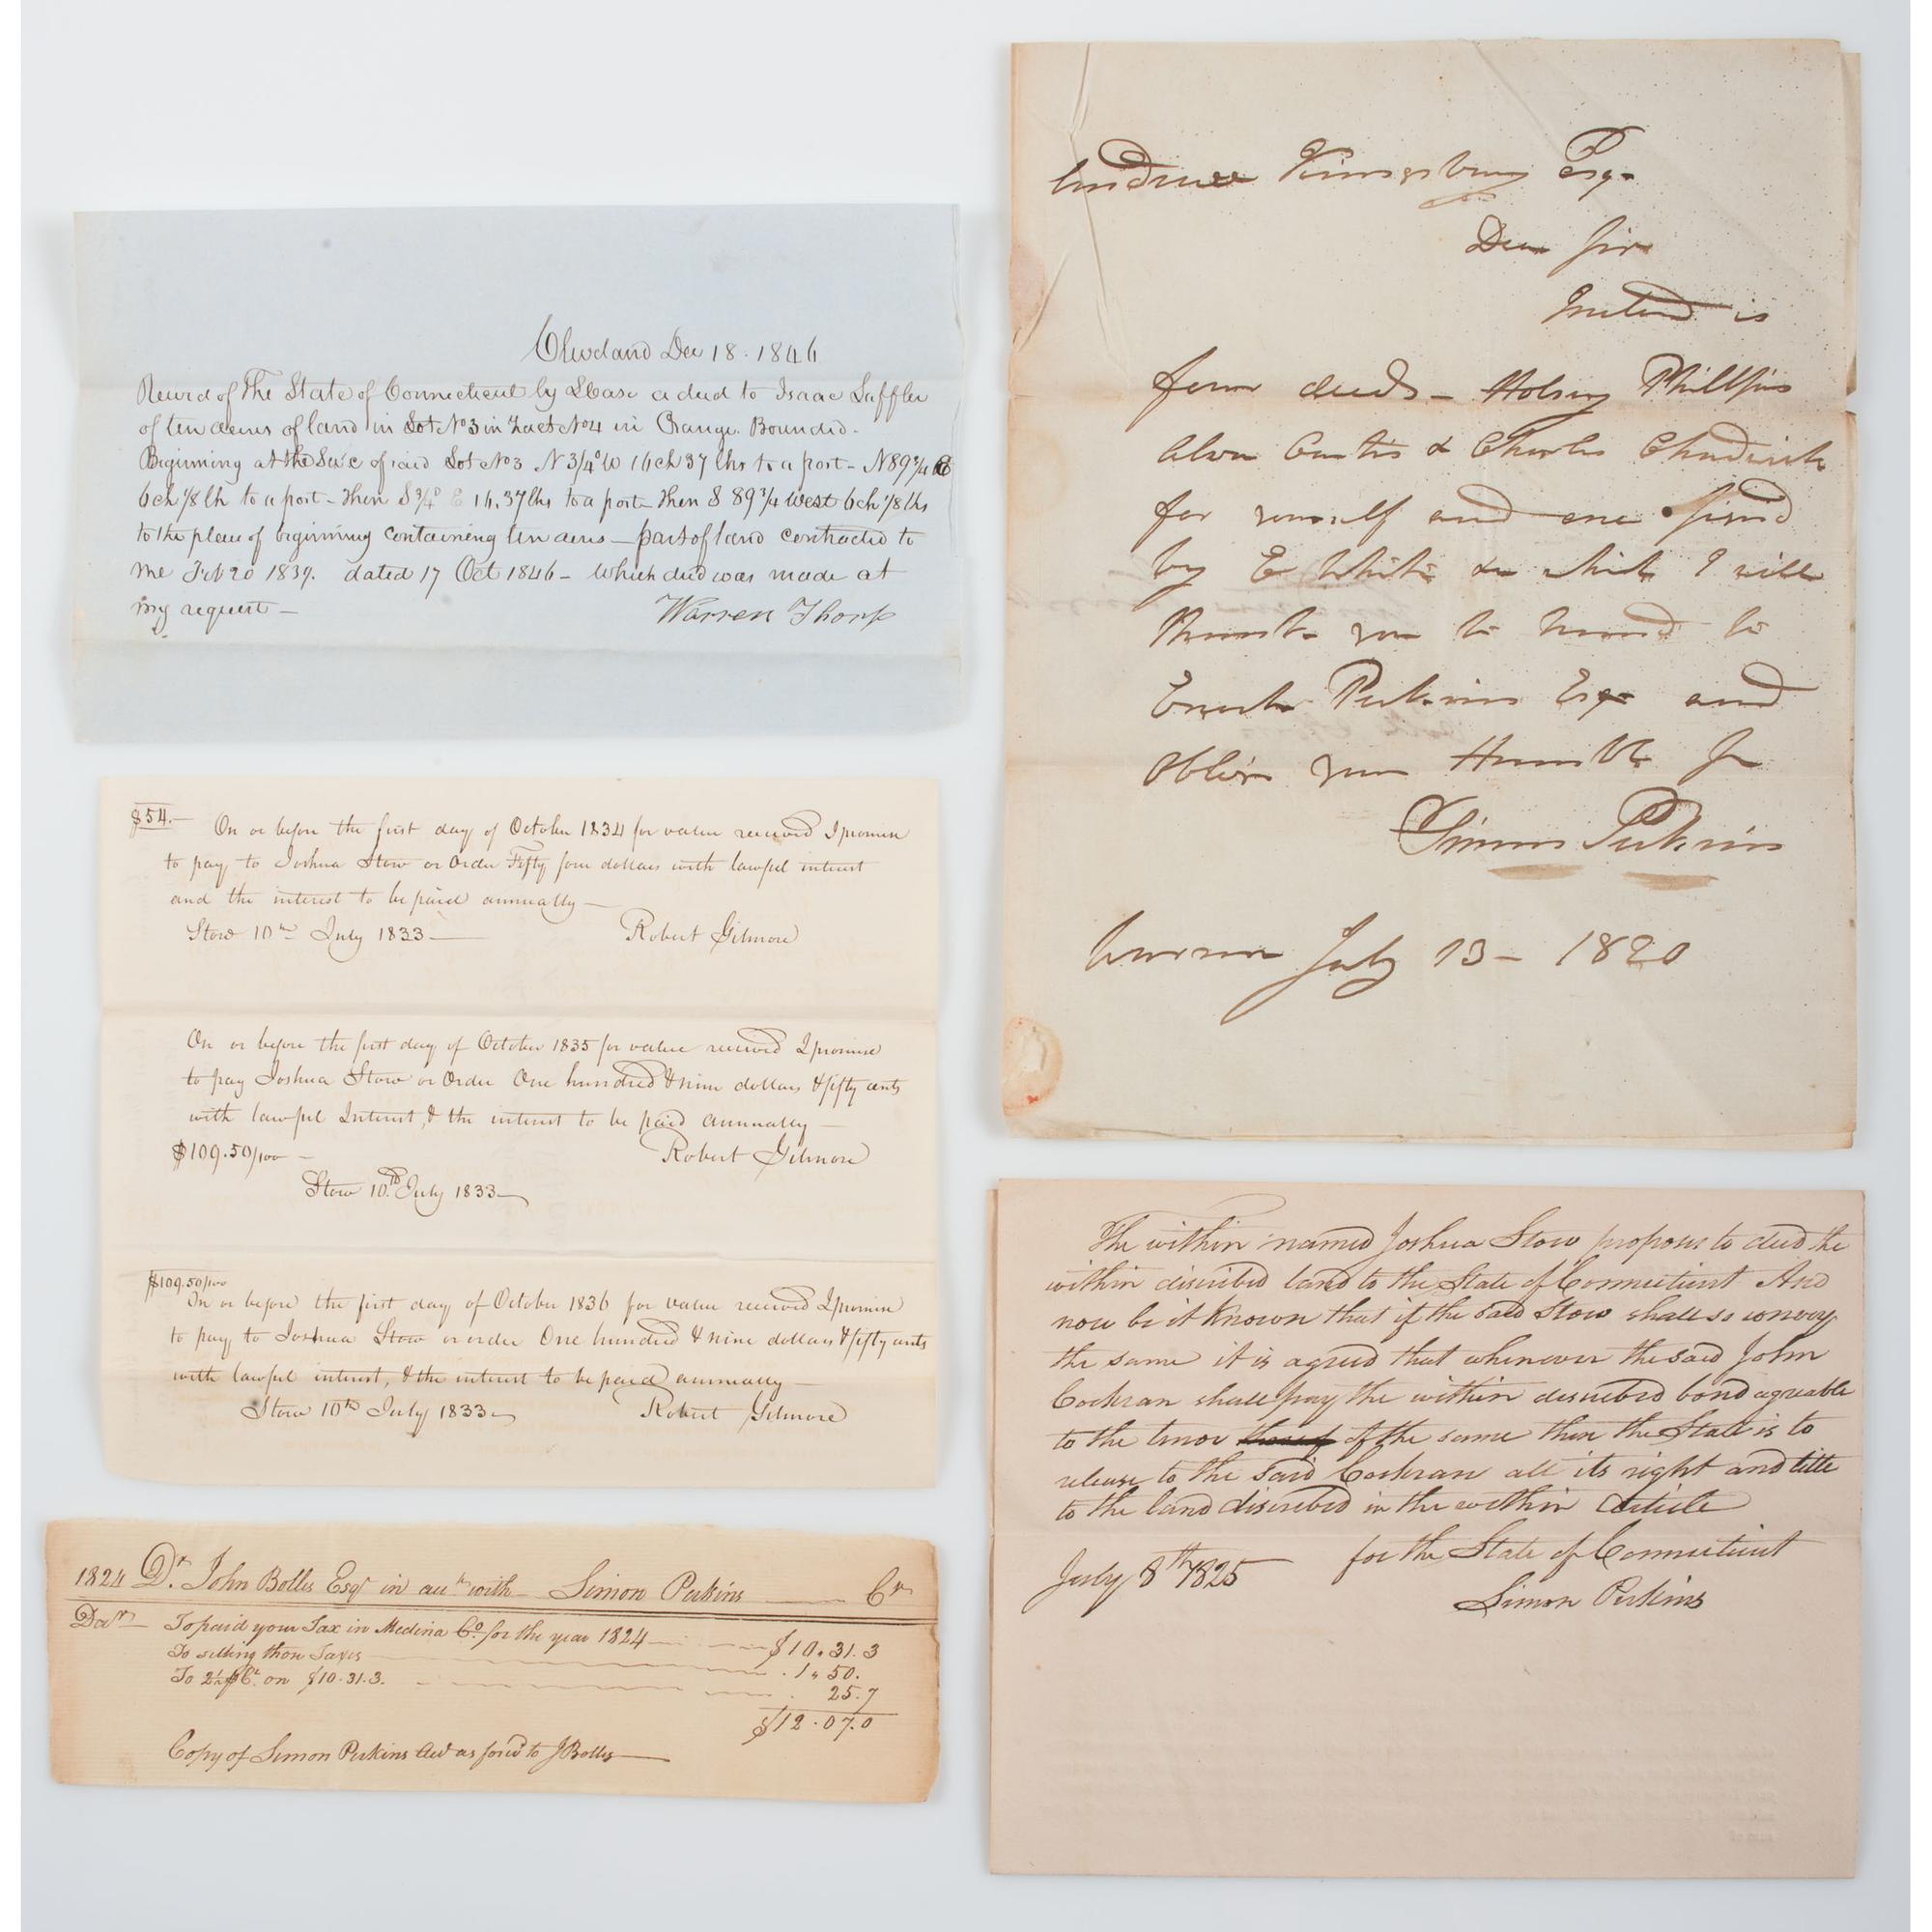 Cleveland Dec 18. 1846
Recvd of The State of Connecticut by L Case a deed to Isaac Saffler
of ten acres of land in Lot No 3 in Tract No 4 in Orange. Bounded.
Beginning at the of said Lot No 3 N 3/4° W 16 ch 37 lks to a post - N 89 3/4 E
6 ch 1/8 lk to a post - then S 3/4° E 16.37 lks to a post - then S 89 3/4 West 6 ch 1/8 lks
to the place of beginning containing ten acres - part of land contracted to
me Feb 20 1839. dated 17 Oct 1846 - which deed was made at
my request -
Warren Thorp
$54.-
On or before the first day of October 1834 for value received I promise
to pay to Joshua Stow or Order Fifty four dollars with lawful interest
and the interest to be paid annually -
Stow 10th July 1833 -
Robert Gilmore
On or before the first day of October 1835 for value received I promise
to pay Joshua Stow or Order One hundred & nine dollars & fifty cents
with lawful Interest, & the interest to be paid annually -
$109.50/100 -
Robert Gilmore
Stow 10th July 1833 -
$109.50/100
On or before the first day of October 1836 for value received I promise
to pay to Joshua Stow or order One hundred & nine dollars & fifty cents
with lawful interest, & the interest to be paid annually -
Stow 10th July 1833 -
Robert Gilmore
1824 Dr. John Bolles Esqr in acct with - Simon Perkins - Cr
Decr - To paid your Tax in Medina Co. for the year 1824 - $10.31.3
To selling thon Taxes - 1.50.
To 2 1/2 p Ct. on $10.31.3. 25.7
$12.07.0
Copy of Simon Perkins Act as forwd to J Bolles -
Andrew Kingsbury Esq.
Dear Sir
Inclosed is
four deeds - Holsey Phillips
Alva Curtis & Charles Chadwick
for yourself and one signed
by E White &c which I will
thank you to hand to
Enoch Perkins Esq and
oblige your Humble Sr
Simon Perkins
Warren July 13 - 1820
The within named Joshua Stow proposes to deed the
within discribed land to the State of Connecticut And
now be it Known that if the said Stow shall so convey
the same it is agreed that whenever the said John
Cochran shall pay the within described bond agreable
to the tenor thereof of the same then the State is to
release to the said Cochran all its right and title
to the land discribed in the within Article
for the State of Connecticut
July 8th 1825
Simon Perkins